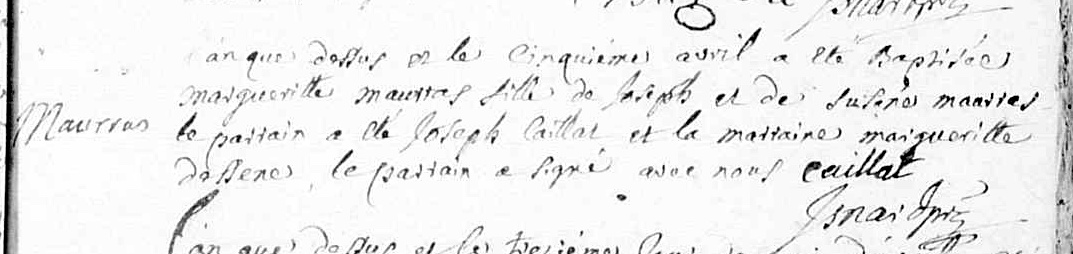 L'an que dessus et le cinquieme avril a eté Baptisée
Margueritte maurras fille de Joseph et de Susene maurras
Maurras
le parrain a eté Joseph Caillat et la marraine margueritte
dessene, le parrain a signé avec nous Caillat
Isnard
L'an que dessus et le tresiéme